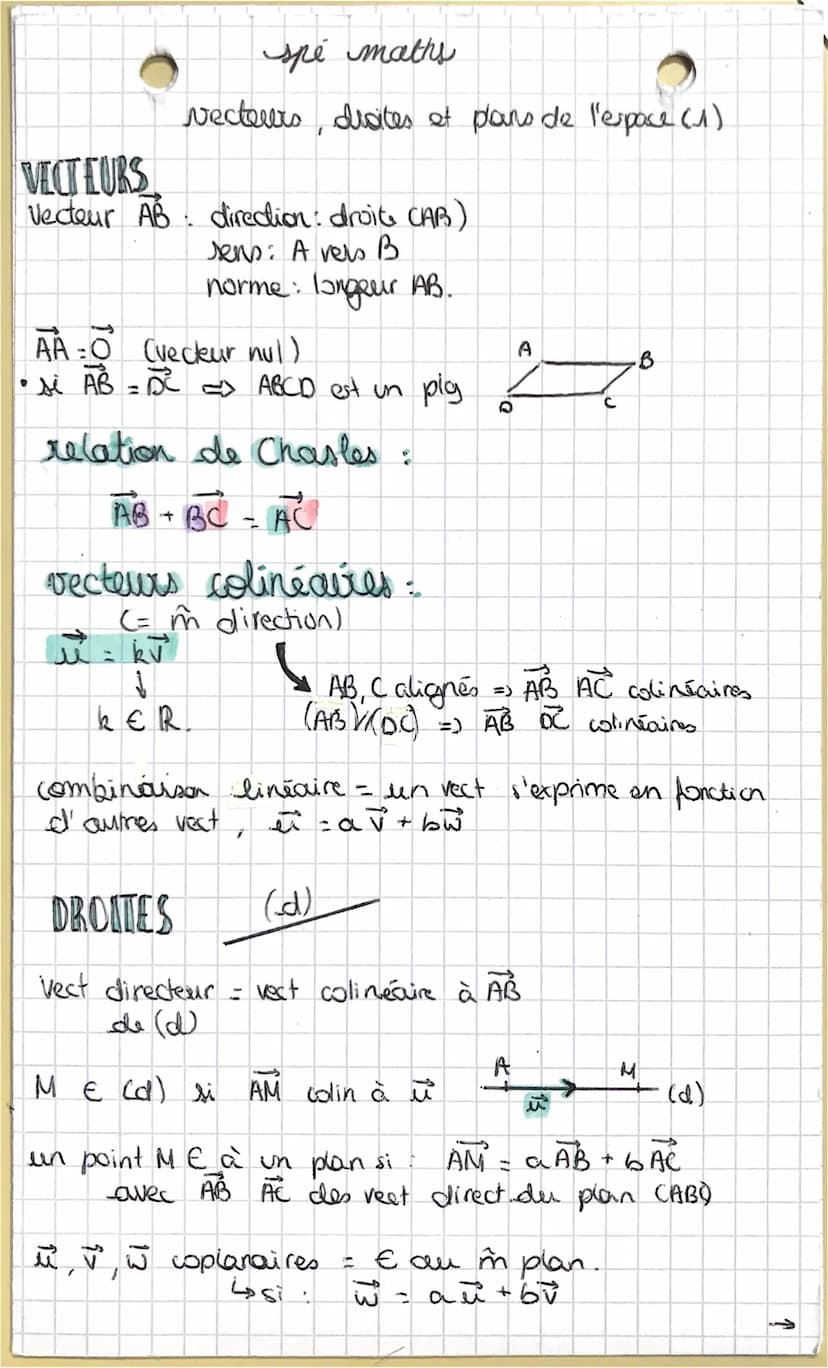 spé maths
vecteurs, droites et plans de l'espace (1)
VECTEURS
Vecteur $\overrightarrow{AB}$ : direction : droite (AB)
sens : A vers B
norme : longeur AB.
$\overrightarrow{AA}$ = $\overrightarrow{O}$ (vecteur nul)
A B
• si $\overrightarrow{AB}$ = $\overrightarrow{DC}$ => ABCD est un plg
D C
relation de Chasles :
$\overrightarrow{AB}$ + $\overrightarrow{BC}$ = $\overrightarrow{AC}$
vecteurs colinéaires :
(= m̂ direction)
$\vec{u}$ = k$\vec{v}$
↓
AB, C alignés => $\overrightarrow{AB}$ $\overrightarrow{AC}$ colinéaires
k ∈ R.
(AB)//(DC) => $\overrightarrow{AB}$ $\overrightarrow{DC}$ colinéaires
combinaison linéaire = un vect s'exprime en fonction
d'autres vect, $\vec{u}$ = a$\vec{v}$ + b$\vec{w}$
DROITES (d)
Vect directeur = vect colinéaire à $\overrightarrow{AB}$
de (d)
M ∈ (d) si $\overrightarrow{AM}$ colin à $\vec{u}$
A M
$\vec{u}$ (d)
un point M ∈ à un plan si : $\overrightarrow{AM}$ = a$\overrightarrow{AB}$ + b$\overrightarrow{AC}$
avec $\overrightarrow{AB}$ $\overrightarrow{AC}$ des vect direct. du plan (ABC)
$\vec{u}$, $\vec{v}$, $\vec{w}$ coplanaires = ∈ au m̂ plan.
↳ si : $\vec{w}$ = a$\vec{u}$ + b$\vec{v}$
→